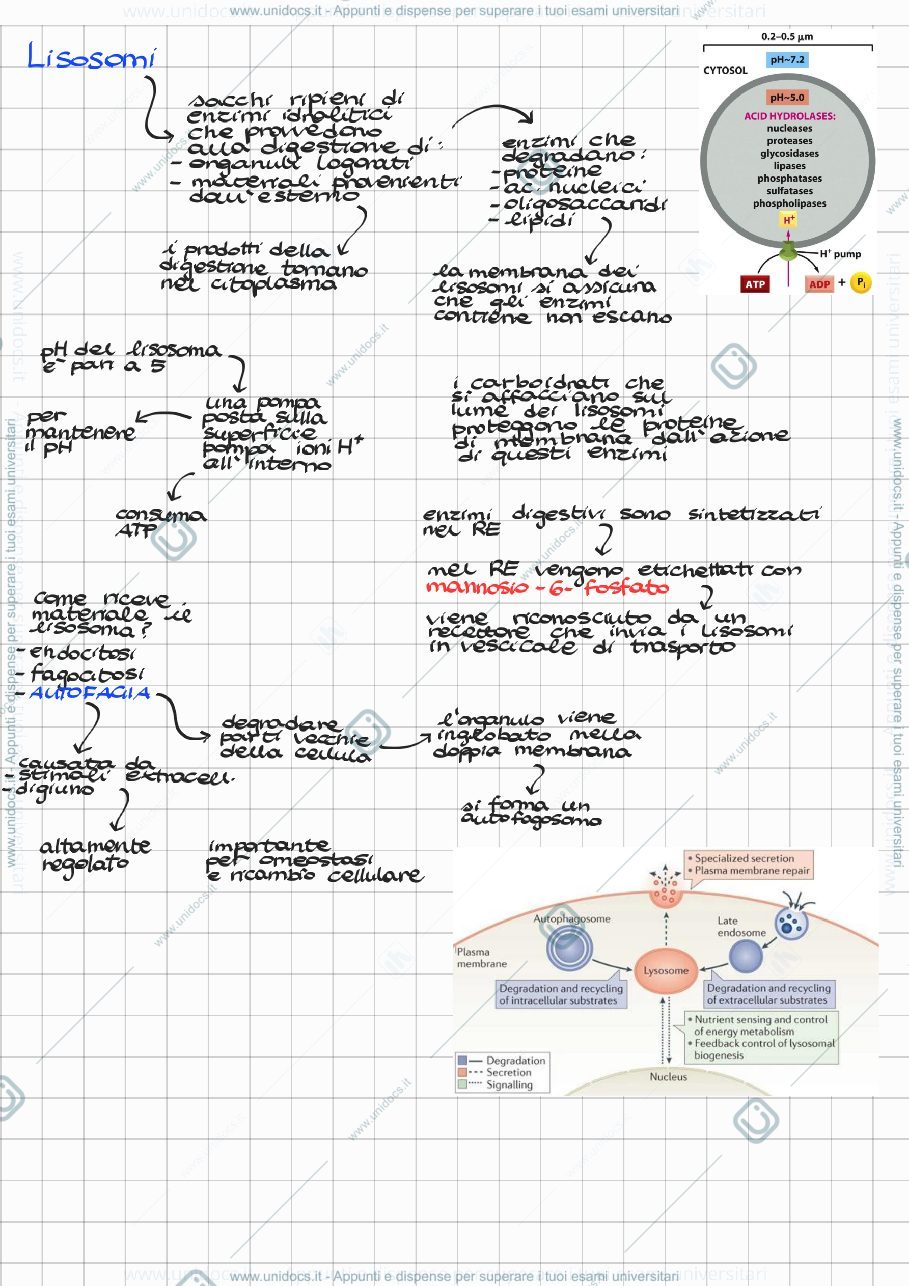 www.unidocs.it - Appunti e dispense per superare i tuoi esami universitari
Lisosomi
sacchi ripieni di
enzimi idrolitici
che provvedono
alla digestione di:
- organuli loggrati
- materiali provenienti
dall'esterno
enzimi che
degradano:
- proteine
- ac. nucleici
- oligosaccaridi
- lipidi
0.2–0.5 µm
pH~7.2
CYTOSOL
pH~5.0
ACID HYDROLASES:
nucleases
proteases
glycosidases
lipases
phosphatases
sulfatases
phospholipases
H+
H+ pump
ATP
ADP + Pi
i prodotti della
digestione tornano
nel citoplasma
la membrana dei
lisosomi si assicura
che gli enzimi
contiene non escano
pH del lisosoma
è pari a 5
una pompa
posta sulla
superficie
pompa ioni H+
all'interno
per
mantenere
il pH
consuma
ATP
i carboidrati che
si affacciano sul
lume dei lisosomi
proteggono le proteine
di membrana dall'azione
di questi enzimi
enzimi digestivi sono sintetizzati
nel RE
nel RE vengono etichettati con
mannosio - 6 - fosfato
viene riconosciuto da un
recettore che invia i lisosomi
in vescicale di trasporto
come riceve
materiale il
lisosoma?
- endocitosi
- fagocitosi
- AUTOFAGIA
degradare
parti vecchie
della cellula
l'organulo viene
inglobato nella
doppia membrana
si forma un
autofagosomo
causata da
- stimoli extracell.
- digiuno
altamente
regolato
importante
per omeostasi
e ricambio cellulare
• Specialized secretion
• Plasma membrane repair
Autophagosome
Late
endosome
Plasma
membrane
Lysosome
Degradation and recycling
of intracellular substrates
Degradation and recycling
of extracellular substrates
• Nutrient sensing and control
of energy metabolism
• Feedback control of lysosomal
biogenesis
Degradation
Secretion
Signalling
Nucleus
www.unidocs.it - Appunti e dispense per superare i tuoi esami universitari